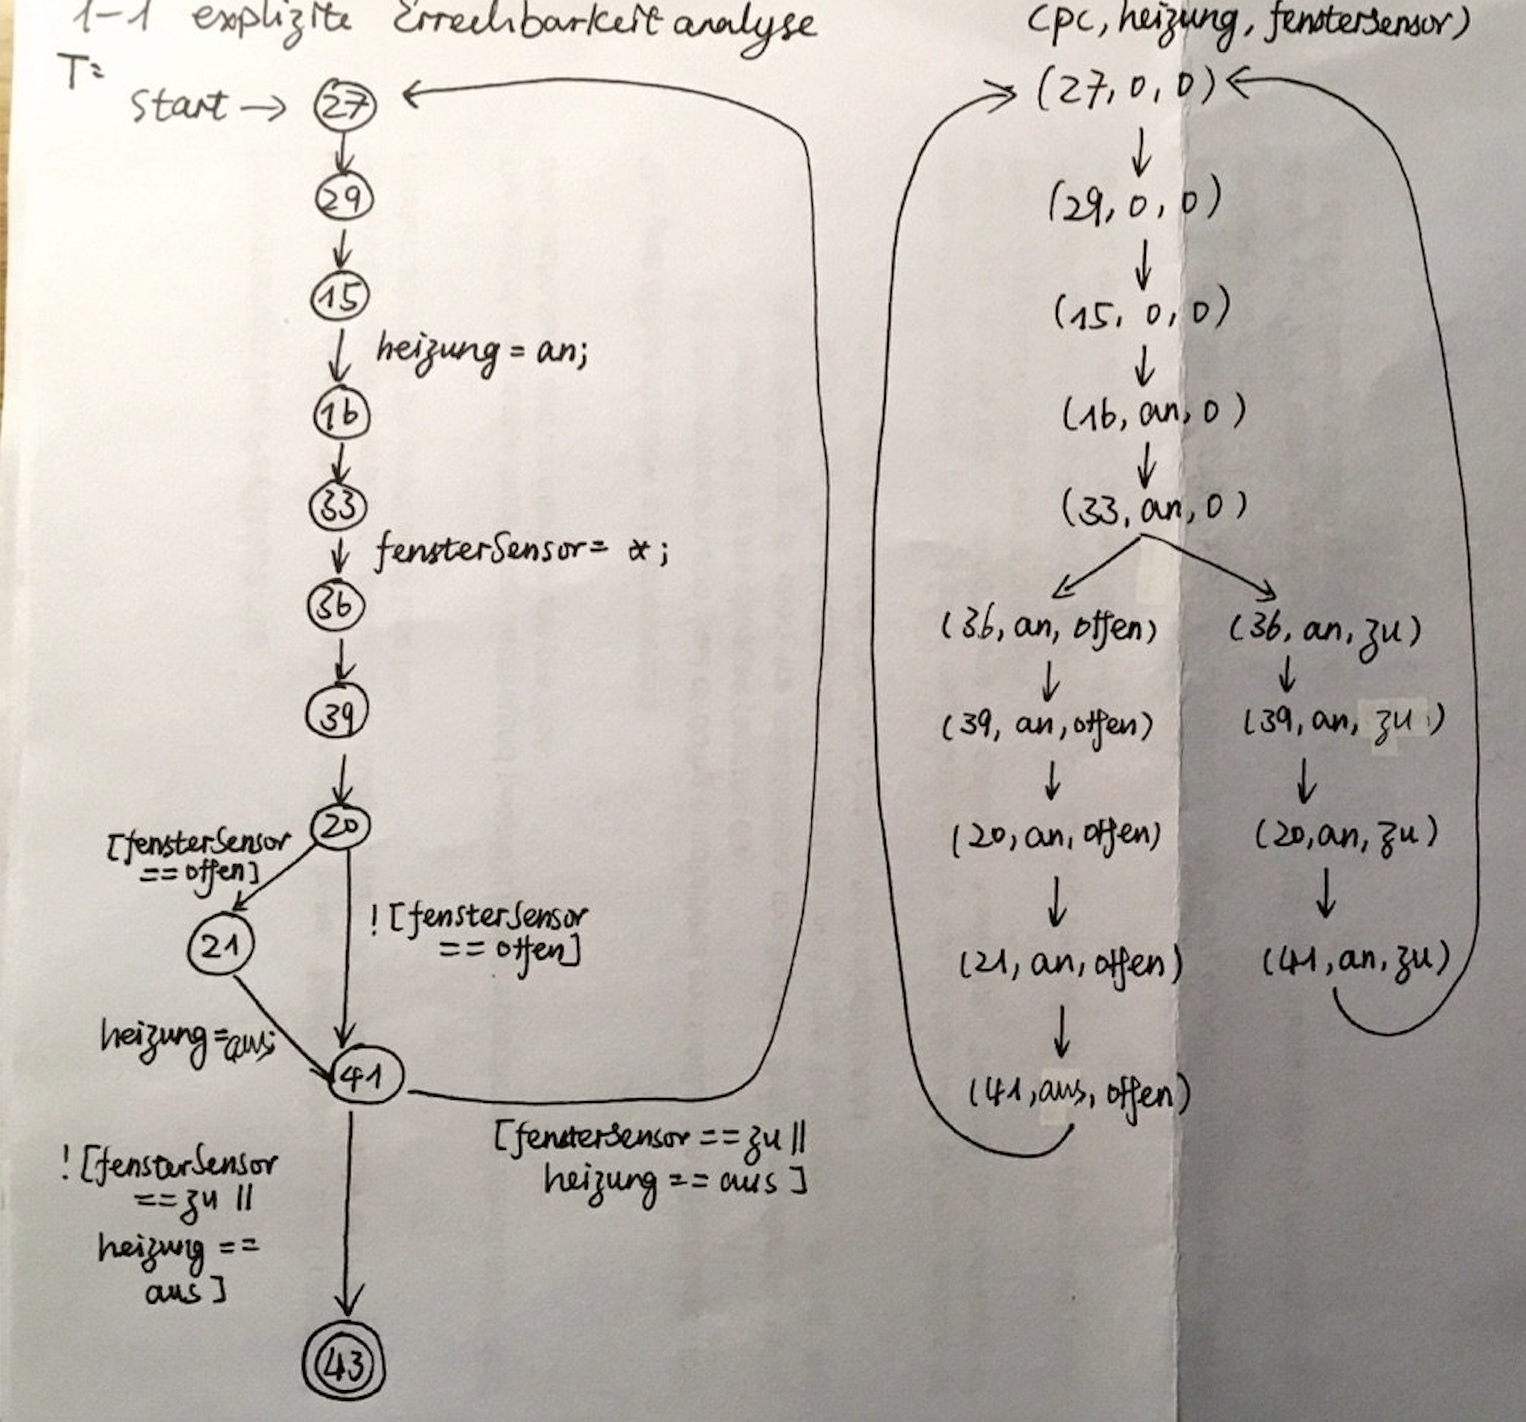 1-1 explizite Erreichbarkeit analyse
T=
Start →
27
29
15
heizung = an;
16
33
fensterSensor = *;
36
39
20
[fensterSensor
== offen]
21
! [fensterSensor
== offen]
heizung = aus;
41
[fensterSensor == zu ||
heizung == aus ]
! [fensterSensor
== zu ||
heizung ==
aus ]
43
(pc, heizung, fenstersensor)
(27, 0, 0)
(29, 0, 0)
(15, 0, 0)
(16, an, 0)
(33, an, 0)
(36, an, offen) (36, an, zu)
(39, an, offen) (39, an, zu)
(20, an, offen) (20, an, zu)
(21, an, offen) (41, an, zu)
(41, aus, offen)